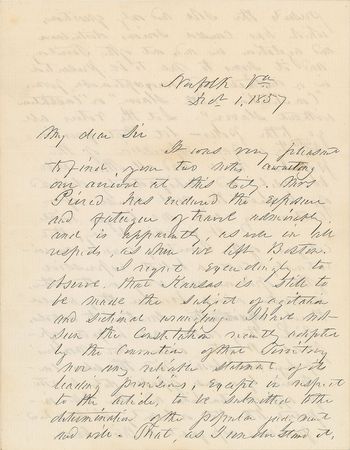 Norfolk Va
Dec 1. 1857
My dear Sir
It was very pleasant
to find, your two notes awaiting
our arrival at this City. Mrs
Pierce has endured the exposure
and fatigue of travel admirably
and is apparently, as well in all
respects, as when we left Boston.
I regret exceedingly to
observe. that Kansas is still to
be made the subject of agitation
and sectional wrangling. I have not
seen the Constitution recently adopted
by the Convention of that Territory
nor any reliable statement of its
leading provisions, except in respect
to the article, to be submitted to the
determination of the popular judgment
and vote - That, as I understand it,